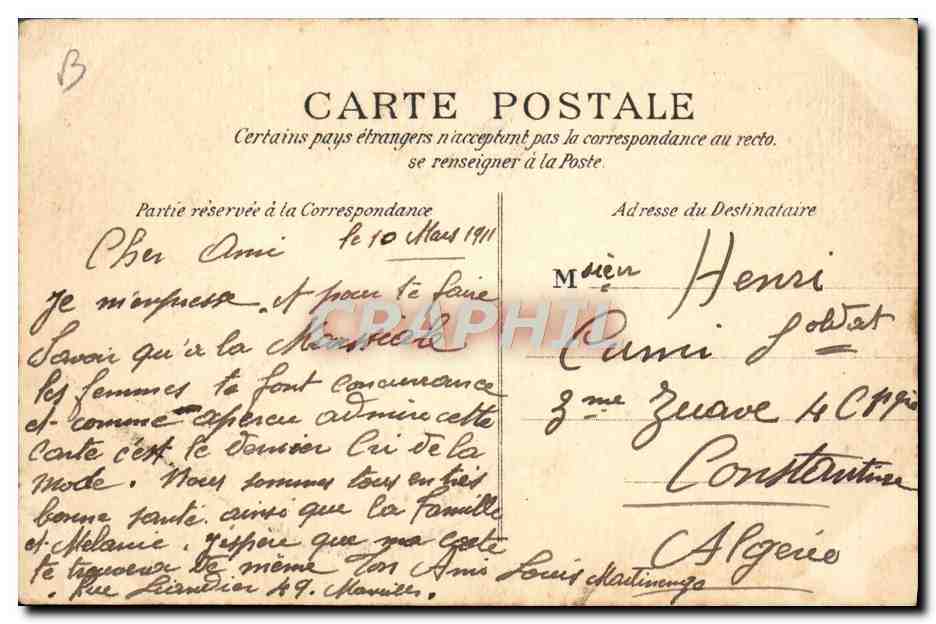 B
CARTE POSTALE
Certains pays étrangers n'acceptent pas la correspondance au recto.
se renseigner à la Poste.
Partie réservée à la Correspondance
le 10 Mars 1911
Cher Ami
Je m'empresse et pour te faire
Savoir qu'a la
les femmes te font concurrance
et comme apercu admire cette
Carte c'est le dernier Cri de la
mode. Nous sommes tous en très
bonne santé ainsi que la famille
et Melanie. J'espère que ma carte
te trouvera de même Ton Ami Louis Martinengo
Rue Liandier 49. Marseille.
Adresse du Destinataire
Msieur Henri
Cumi Soldat
3me Zuave 4 Cpgie
Constantine
Algérie
CRAPHIL